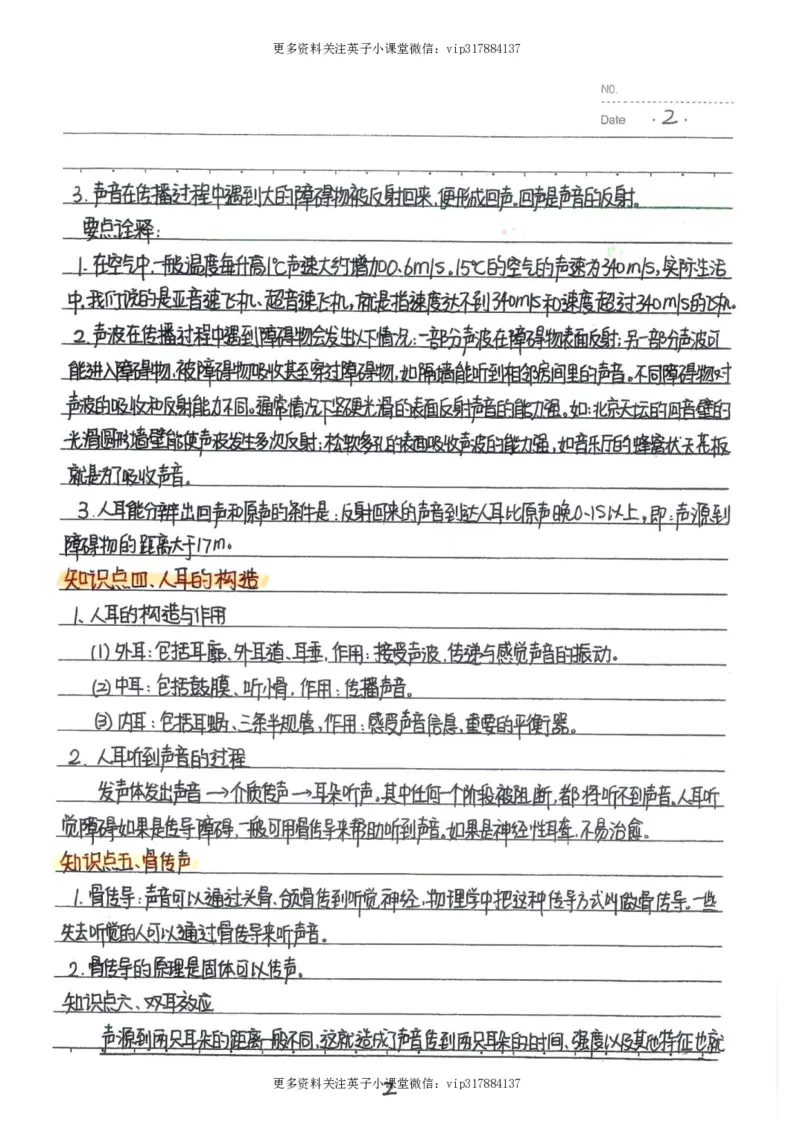 更多资料关注英子小课堂微信：vip317884137
NO.
Date ·2·
3.声音在传播过程中遇到大的障碍物被反射回来,便形成回声。回声是声音的反射。
要点诠释:
1.在空气中,一般温度每升高1℃声速大约增加0.6m/s。15℃的空气的声速为340m/s,实际生活
中,我们说的是亚音速飞机、超音速飞机,就是指速度达不到340m/s和速度超过340m/s的飞机。
2.声波在传播过程中遇到障碍物会发生以下情况:一部分声波在障碍物表面反射;另一部分声波可
能进入障碍物,被障碍物吸收甚至穿过障碍物,如隔墙能听到相邻房间里的声音。不同障碍物对
声波的吸收和反射能力不同。通常情况下坚硬光滑的表面反射声音的能力强。如:北京天坛的回音壁的
光滑圆形墙壁能使声波发生多次反射;松软多孔的表面吸收声波的能力强,如音乐厅的蜂窝状天花板
就是为了吸收声音。
3.人耳能分辨出回声和原声的条件是:反射回来的声音到达人耳比原声晚0.1s以上,即:声源到
障碍物的距离大于17m。
知识点四、人耳的构造
1、人耳的构造与作用
(1)外耳:包括耳廓、外耳道、耳垂,作用:接受声波,传递与感觉声音的振动。
(2)中耳:包括鼓膜、听小骨,作用:传播声音。
(3)内耳:包括耳蜗、三条半规管,作用:感受声音信息,重要的平衡器。
2.人耳听到声音的过程
发声体发出声音→介质传声→耳朵听声。其中任何一个阶段被阻断,都将听不到声音。人耳听
觉障碍如果是传导障碍,一般可用骨传导来帮助听到声音。如果是神经性耳聋,不易治愈。
知识点五、骨传声
1.骨传导:声音可以通过头骨、颌骨传到听觉神经,物理学中把这种传导方式叫做骨传导。一些
失去听觉的人可以通过骨传导来听声音。
2.骨传导的原理是固体可以传声。
知识点六、双耳效应
声源到两只耳朵的距离一般不同,这就造成了声音传到两只耳朵的时间、强度以及其他特征也就
更多资料关注英子小课堂微信：vip317884137
2